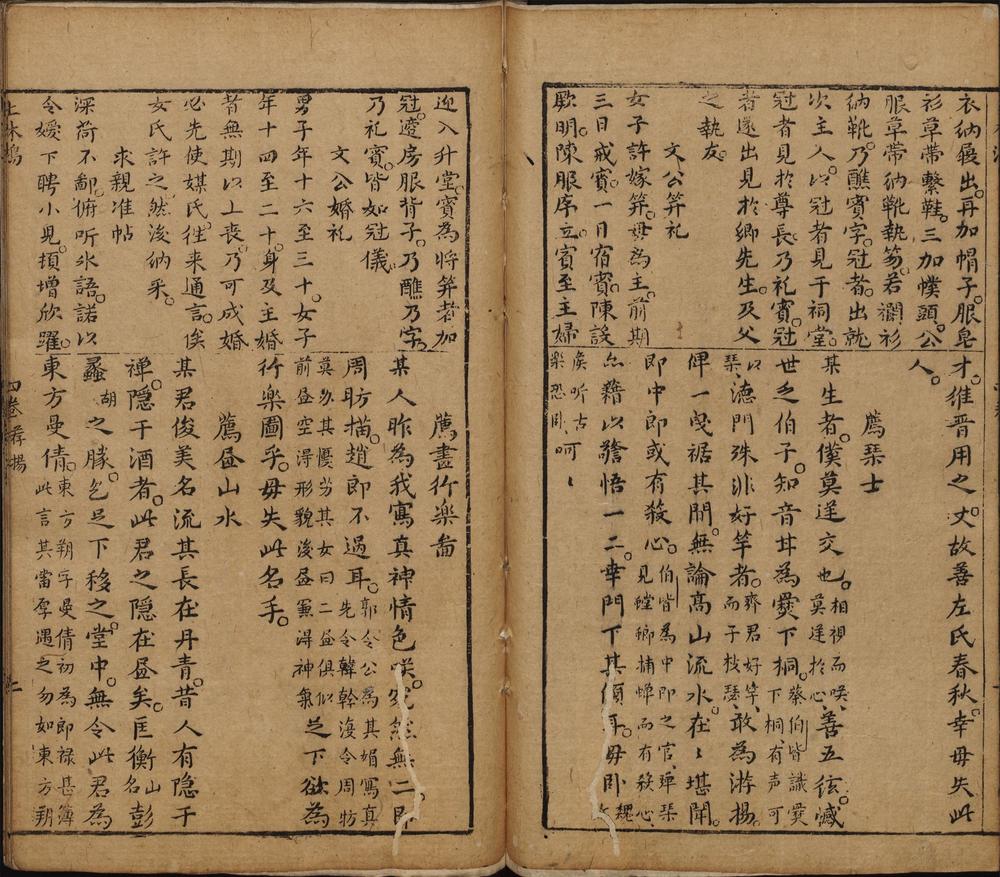 衣納屐出。再加帽子。服皂
衫草帶繫鞋。三加幞頭。公
服草帶納靴執笏。若襴衫
納靴。乃醮賓。字冠者。出就
次主人。以冠者見于祠堂。
冠者見於尊長乃礼賓。冠
者遂出見於鄉先生。及父
之執友。
文公笄礼
女子許嫁笄。母為主。前期
三日戒賓。一日宿賓。陳設
厥明。陳服序立賓至主婦
才。維晋用之。丈故善左氏春秋。幸毋失此
人。
薦琴士
某生者。僕莫逆交也。相視而唉、莫逆於心、善五弦。憾
世乏伯子知音甘為爨下桐。蔡伯喈識爨下桐有声可
以琴、德門殊非好竽者。齊君好竽、而子枝瑟、敢為游揚。
俾一曵裾其間。無論高山流水。在〻堪聞。
即中郎或有殺心。伯喈為中郎之官、琴見螳螂捕蟬而有殺心、
亦藉以警悟一二。幸門下其傾耳。毋卧魏文
侯听古樂恐卧、呵〻
迎入升堂。賓為將笄者加
冠。適房服背子。乃醮乃字。
乃礼賓。皆如冠儀
文公婚礼
男子年十六至三十。女子
年十四至二十。身及主婚
者無期以上喪。乃可成婚
必先使媒氏往来通言。俟
女氏許之然後納采。
求親准帖
深荷不鄙。俯听氷語。諾以
令嫒下聘小児。頂增欣躍。
薦畫行樂啚
某人昨為我寫真神情色唉。宛然無二。即
周昉描。趙郎不過耳。郭令公為其婿寫真先令韓幹後令周昉
莫列其優劣其女曰二昼俱似前昼空淂形貌後昼兼淂神氣足下欲為
行樂圖乎。毋失此名手。
薦昼山水
某君俊美名流其長在丹青。昔人有隐于
禅。隐于酒者。此君之隐在昼矣。匡衡山名彭
蠡湖之勝。乞足下移之。堂中。無令此君為
東方曼倩。東方朔字曼倩初為郎禄甚簿此言其當厚遇之勿如東方朔
四卷 荐揚